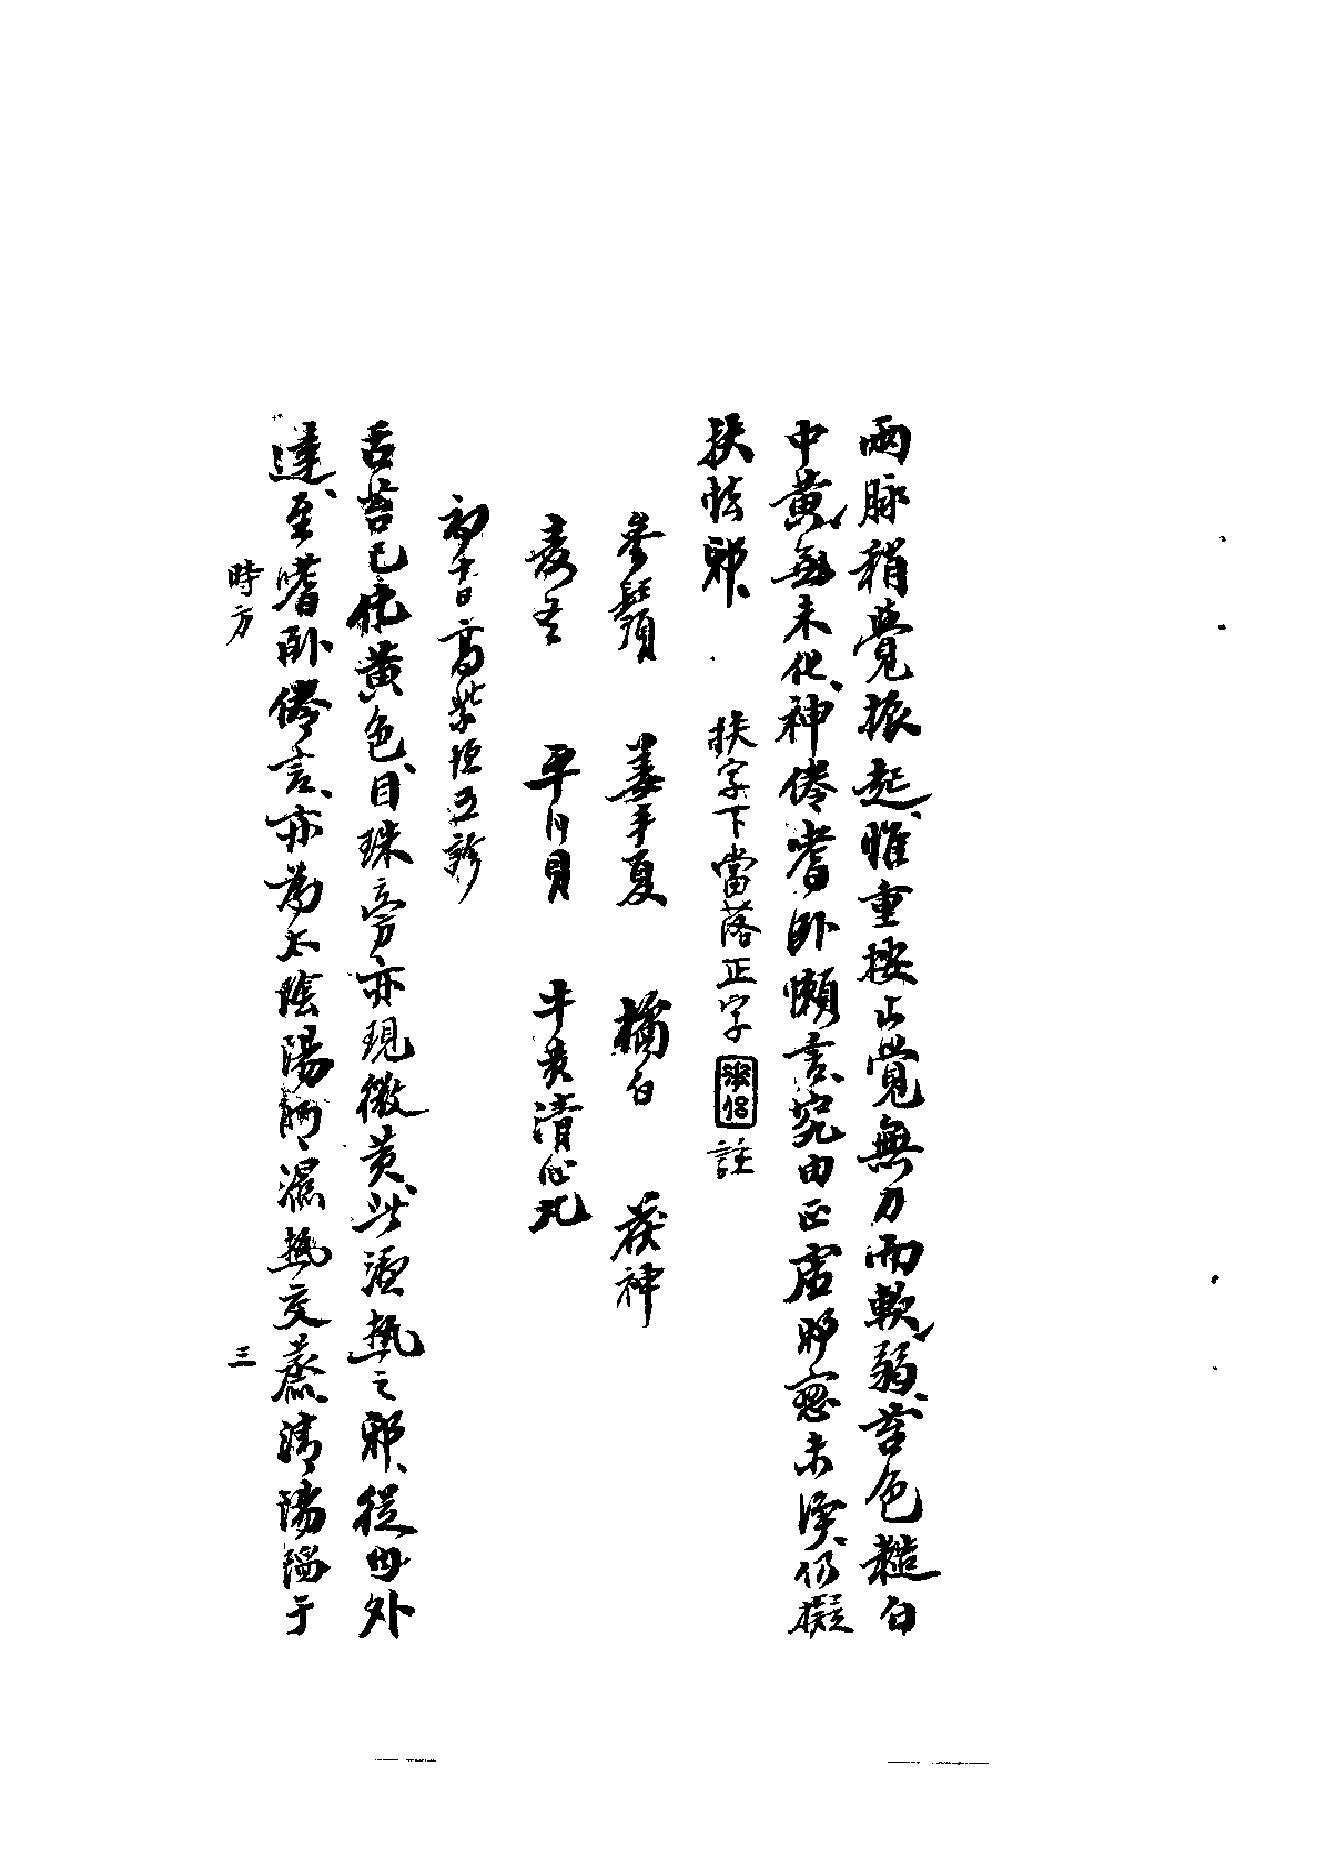 兩脉稍覺振起、唯重按亦覺無力而軟弱、苔色糙白
中黃、無未化、神倦嗜卧懶言、究由正虛邪戀未淨、仍擬
扶怯邪、 扶字下當落正字 註
參鬚 姜半夏 橘白 茯神
麥冬 平川貝 牛黃清心丸
初十日高紫垣五診
舌苔已化黃色、目珠旁亦現微黃、此濕熱之邪、從內外
達、至嗜卧倦言、亦為太陰陽明、濕熱交蒸、清陽陽于
時方 三